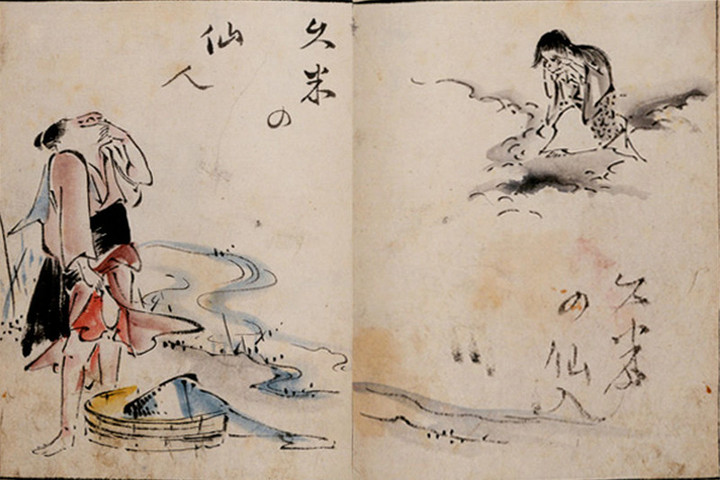 久米
の
仙
人
久米
の仙人